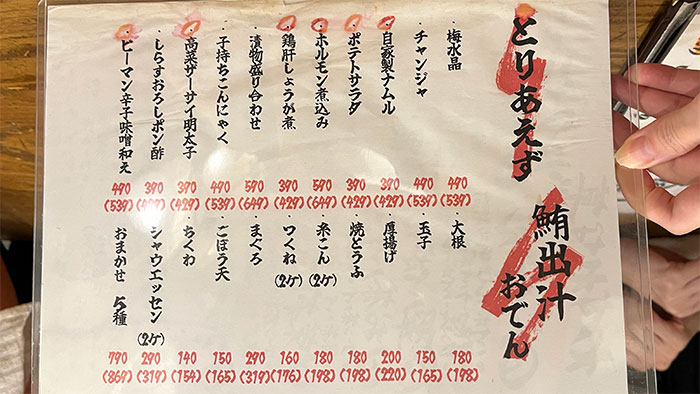 とりあえず
・梅水晶 490 (539)
・チャンジャ 490 (539)
・自家製ナムル 390 (429)
・ポテトサラダ 390 (429)
・ホルモン煮込み 590 (649)
・鶏肝しょうが煮 390 (429)
・漬物盛り合わせ 590 (649)
・子持ちこんにゃく 490 (539)
・高菜ザーサイ明太子 390 (429)
・しらすおろしポン酢 390 (429)
・ピーマン辛子味噌和え 490 (539)
鮪出汁おでん
・大根 180 (198)
・玉子 150 (165)
・厚揚げ 200 (220)
・焼どうふ 180 (198)
・糸こん(2ケ) 180 (198)
・つくね(2ケ) 160 (176)
・まぐろ 290 (319)
・ごぼう天 150 (165)
・ちくわ 140 (154)
・シャウエッセン(2ケ) 290 (319)
おまかせ 5種 790 (869)